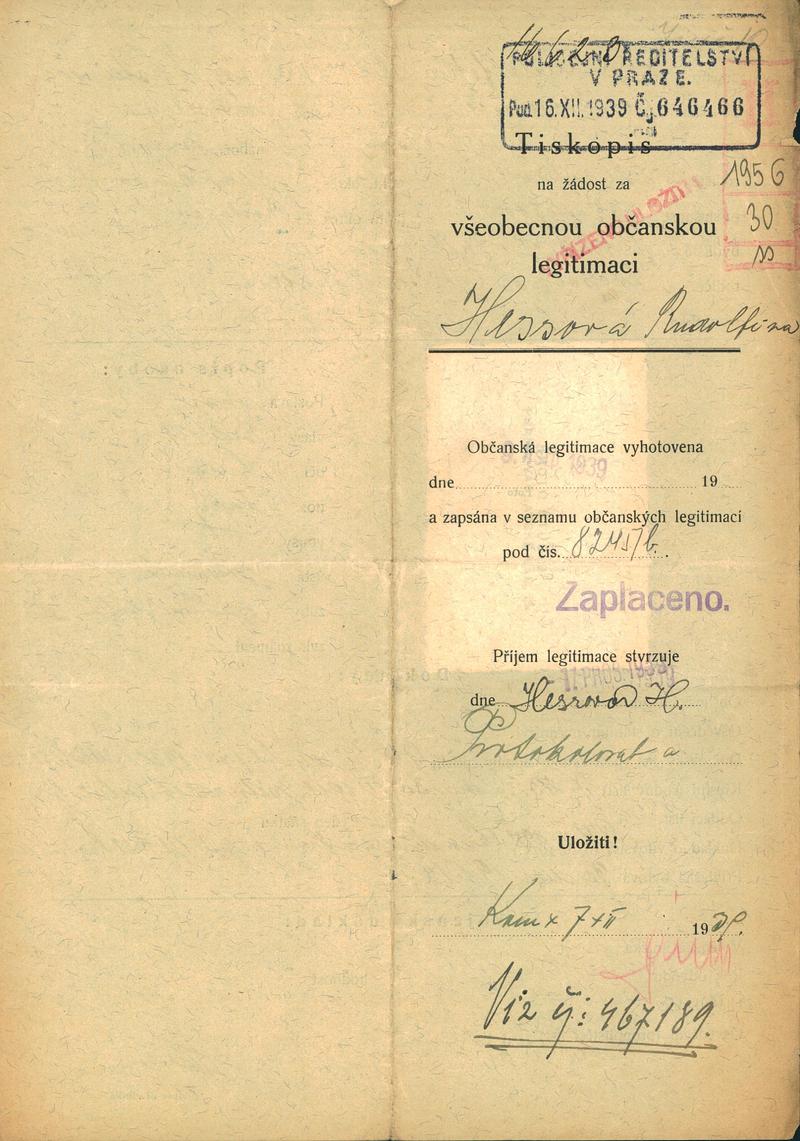 POLICEJNÍ ŘEDITELSTVÍ
V PRAZE.
Pod. 16. XII. 1939 Čj. 646466
Tiskopis
1956
na žádost za
30
všeobecnou občanskou
legitimaci
Hessová Rudolfina
Občanská legitimace vyhotovena
1939
dne 19
a zapsána v seznamu občanských legitimací
pod čís. 8245/6.
Zaplaceno.
Příjem legitimace stvrzuje
dne Hessová H.
Protokolovat a
Uložiti!
7 XII 1939.
Viz čj: 467189.